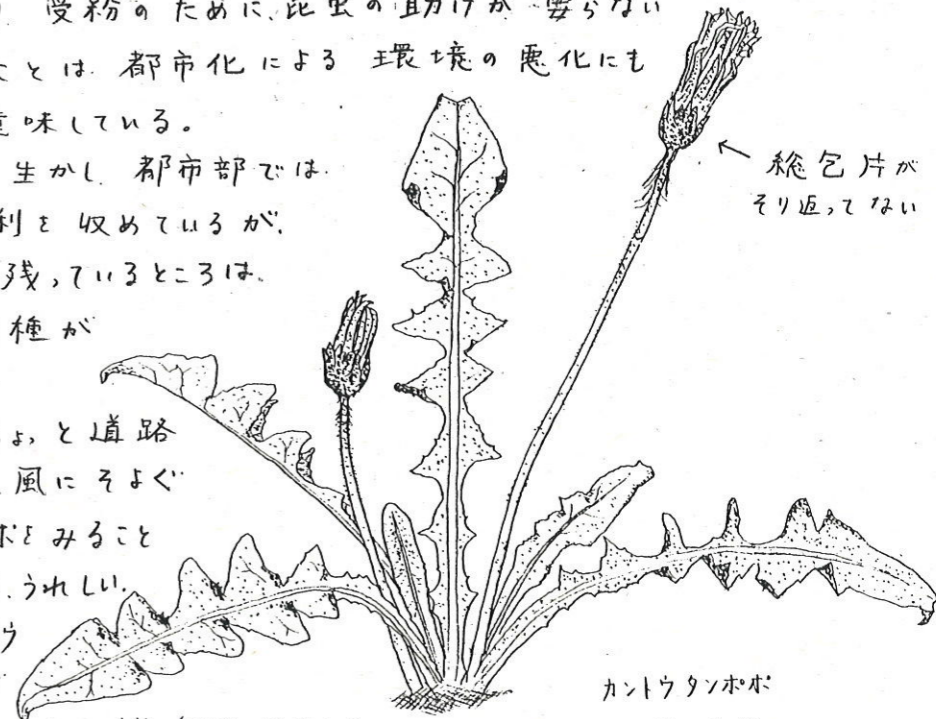 受粉のために、昆虫の助けが要らない
とは都市化による環境の悪化にも
意味している。
生かし、都市部では
利を収めているが、
残っているところは、
種が
ょっと道路
風にそよぐ
ポをみること
うれしい。
ウ
← 総包片が
そり返ってない
カントウタンポポ